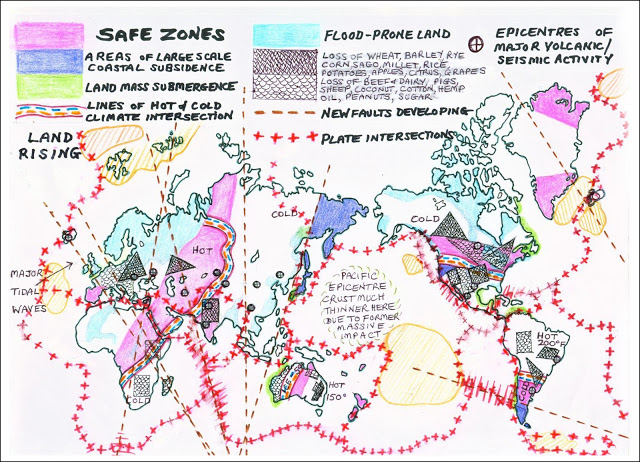 SAFE ZONES
AREAS OF LARGE SCALE
COASTAL SUBSIDENCE
LAND MASS SUBMERGENCE
LINES OF HOT & COLD
CLIMATE INTERSECTION
FLOOD-PRONE LAND
LOSS OF WHEAT, BARLEY, RYE
CORN, SAGO, MILLET, RICE,
POTATOES, APPLES, CITRUS, GRAPES
LOSS OF BEEF & DAIRY, PIGS,
SHEEP, COCONUT, COTTON, HEMP
OIL, PEANUTS, SUGAR
NEW FAULTS DEVELOPING
PLATE INTERSECTIONS
EPICENTRES OF
MAJOR VOLCANIC/
SEISMIC ACTIVITY
LAND
RISING
MAJOR
TIDAL
WAVES
HOT
COLD
COLD
PACIFIC
EPICENTRE
CRUST MUCH
THINNER HERE
DUE TO FORMER
MASSIVE
IMPACT
COLD
HOT
150°
HOT
200°F
COLD